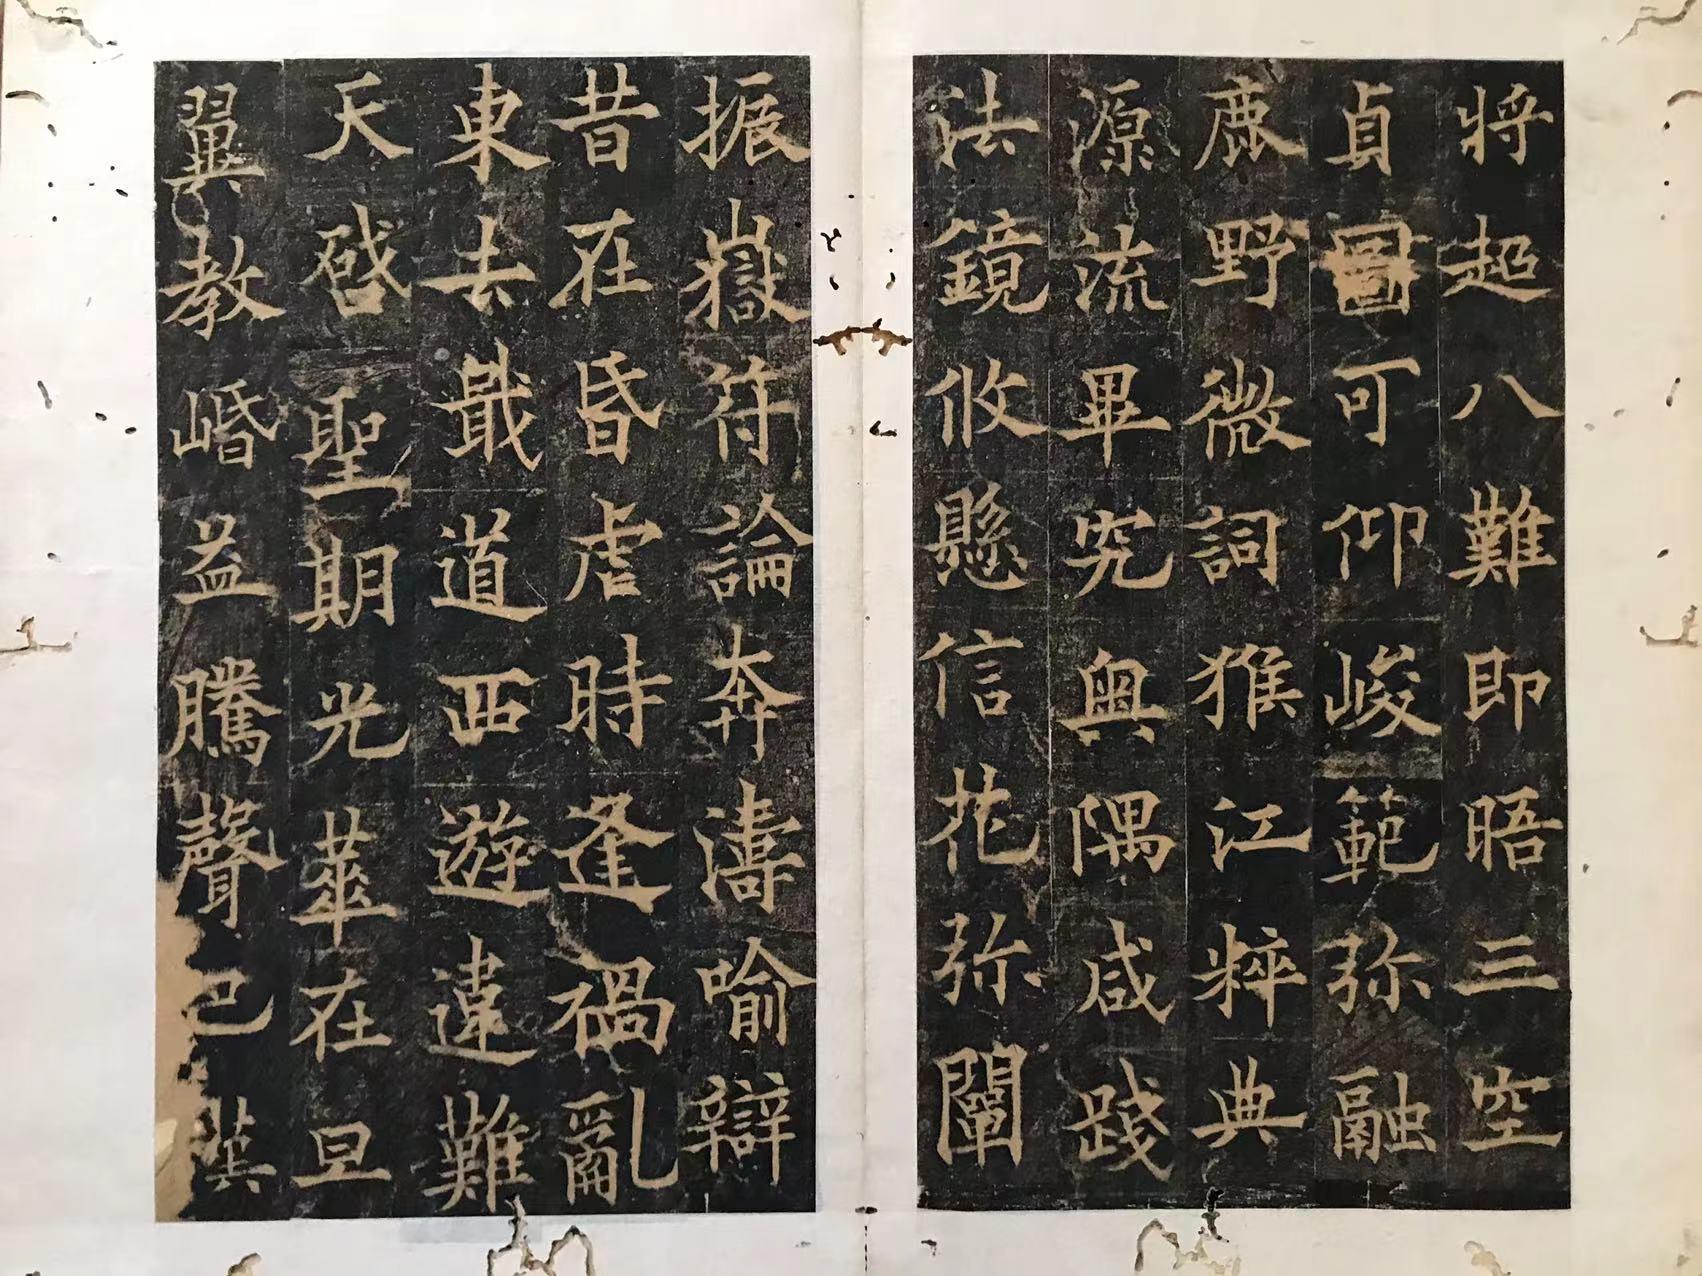 將超八難即晤三空
貞圖可仰峻範弥融
鹿野微詞猴江粹典
源流畢究奧隅咸踐
法鏡攸懸信花弥闡
振嶽符論奔濤喻辯
昔在昏虐時逢禍亂
東去戢道西遊違難
天啓聖期光華在旦
翼教崏益騰聲巴漢